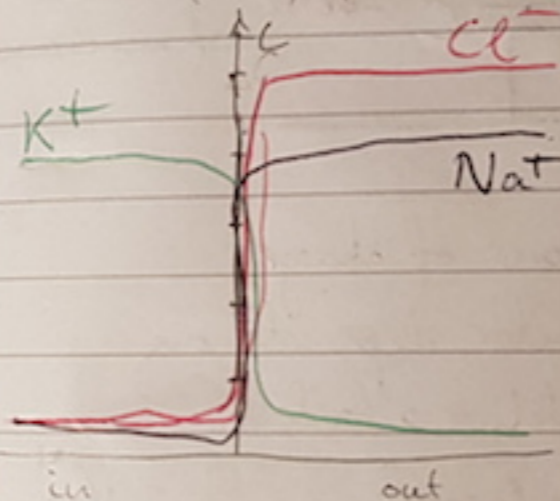 C
Cl⁻
K⁺
Na⁺
in
out